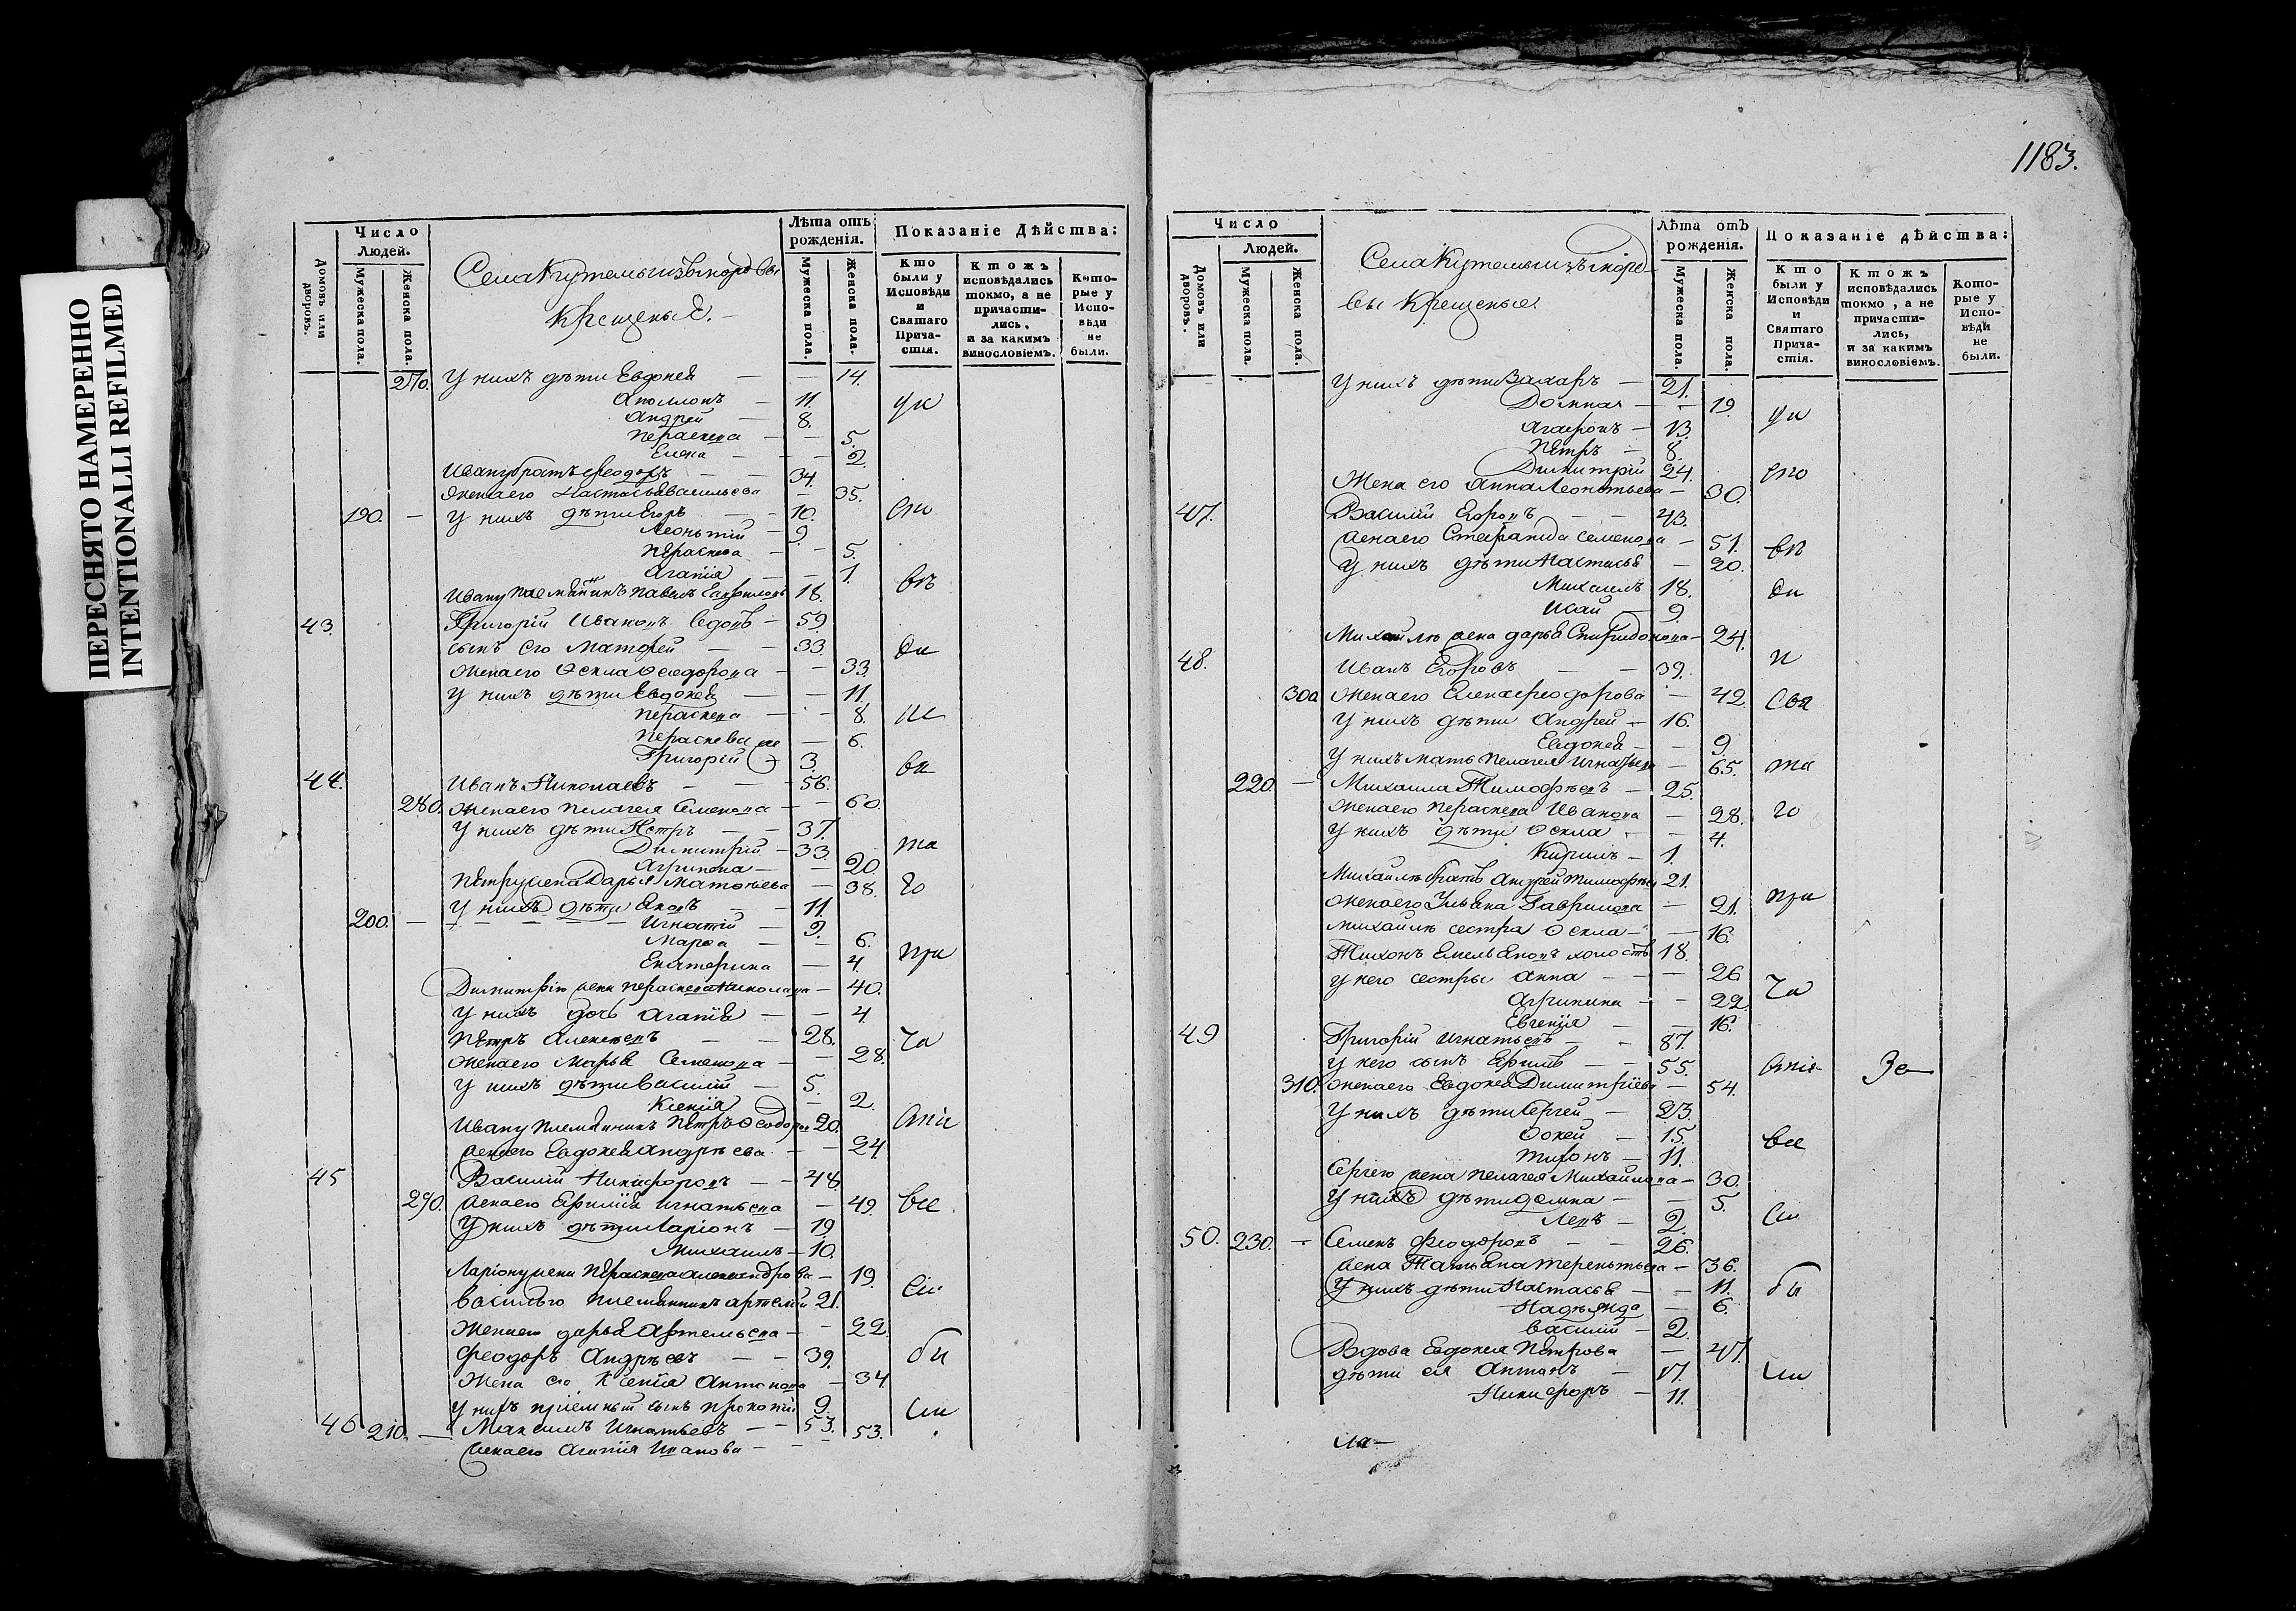 ПЕРЕСНЯТО НАМЕРЕННО
INTENTIONALLI REFILMED
Число
Людей.
Домовъ или дворовъ.
Мужеска пола.
Женска пола.
Села
Крещеные.
Лѣта отъ рожденія.
Мужеска пола.
Женска пола.
Показаніе Дѣйства:
Кто были у Исповѣди и Святаго Прича-стія.
Ктожъ исповѣдались токмо, а не причасти-лись, и за какимъ винословіемъ.
Кото-рые у Испо-вѣди не были.
270. У нихъ дѣти Евдокея — — 14.
Аполлонъ — 11.
Андрей — 8.
Пераскева — — 5.
Елена — — 2.
Ивану братъ Феодоръ — — 34.
Жена его Настасья Васильева — 35.
190. — У нихъ дѣти Егоръ — — 10.
Леонътій — 9.
Пераскева — — 5.
Агапія — — 1.
Ивану племянникъ Павелъ 18.
43. Григорій Ивановъ Седовъ — 59.
сынъ его Матфей — — 33.
Жена его Ѳекла Ѳеодорова — — 33.
У нихъ дѣти Евдокея — — 11.
Пераскева — — 8.
Пераскева же — 6.
Григорій — 3.
44. Иванъ Николаевъ — — 56.
280. Жена его Пелагея Семенова — — 60.
У нихъ дѣти Петръ — — 37.
Димитрій — 33.
Агрипена — — 20.
Петру жена Дарья Матфеева — 38.
У нихъ дѣти Яковъ — — 11.
200. — Игнатій — 9.
Марѳа — — 6.
Екатерина — 4.
Димитрію жена Пераскева Николаева — 40.
У нихъ дочь Агапія — — 4.
Петръ Алексеевъ — — 28.
Жена его Марья Семенова — — 28.
У нихъ дѣти Василій — 5.
Ксенія — 2.
Ивану племянникъ Петръ Ѳеодоровъ 20.
Жена его Евдокея Андрѣева — — 24.
45 Василій Никифоровъ — — 48.
290. Жена его Ефимія Игнатьева — 49.
У нихъ дѣти Ларіонъ — 19.
Михаилъ — 10.
Ларіону жена Пераскева Александрова — 19.
Василью племянникъ Артемій 21.
Жена его Дарья Артемьева — — 22.
Феодоръ Андрѣевъ — — 39.
Жена его Ксенія Антонова — 34.
У нихъ пріемный сынъ Прокопій 9.
46 210. — Максимъ Игнатьевъ — — 53.
Жена его Агапія Иванова — — 53.
1183.
Число
Людей.
Домовъ или дворовъ.
Мужеска пола.
Женска пола.
Села
Крещеные.
Лѣта отъ рожденія.
Мужеска пола.
Женска пола.
Показаніе дѣйства:
Кто были у Исповѣди и Святаго Прича-стія.
Ктожъ исповѣдались токмо, а не причасти-лись, и за какимъ винословіемъ.
Кото-рые у Испо-вѣди не были.
У нихъ дѣти Захаръ — 21.
Домна — — 19.
Агафонъ — 13.
Петръ — 8.
Димитрій 24.
Жена его Анна Леонтьева — 30.
47. Василій Егоровъ — — 43.
Жена его Степанида Семенова — 51.
У нихъ дѣти Настасья — 20.
Михаилъ 18.
Исай — 9.
Михайлѣ жена Дарья Спиридонова — 24.
48. Иванъ Егоровъ — — 39.
300 Жена его Елена Феодорова — 42.
У нихъ дѣти Андрей — 16.
Евдокея — — 9.
У нихъ мать Пелагея Игнатьева — 65.
220. — Михаила Тимофѣевъ — 25.
Жена его Пераскева Иванова — 28.
У нихъ дѣти Ѳекла — — 4.
Кирилъ — 1.
Михайлѣ братъ Андрей Тимофѣевъ 21.
Жена его Ульяна Гаврилова — 21.
Михайлѣ сестра Ѳекла — — 16.
Тихонъ Емельяновъ холостъ 18.
У него сестры Анна — — 26
Агрипина — — 22.
Евгенія — — 16.
49 Григорій Игнатьевъ — — 87.
У него сынъ Ефимъ — — 55.
310. Жена его Евдокея Димитріева — 54.
У нихъ дѣти Сергей — 23.
Фокей — 15.
Тихонъ — 11.
Сергею жена Пелагея Михайлова — 30.
У нихъ дѣти Домна — — 5.
Левъ — 2.
50. 230. — Семенъ Феодоровъ — — 26.
Жена Татьяна Терентьева — 36.
У нихъ дѣти Настасья — — 11.
Надѣжда — 6.
Василій — 2.
Вдова Евдокея Петрова — 47.
дѣти ея Антонъ — 17.
Никифоръ — 11.